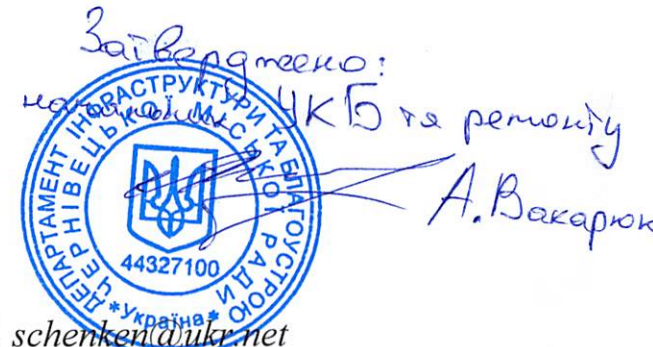 Затверджено:
начальник УКБ та ремонту
А. Вакарюк
ДЕПАРТАМЕНТ ІНФРАСТРУКТУРИ ТА БЛАГОУСТРОЮ
ЧЕРНІВЕЦЬКОЇ МІСЬКОЇ РАДИ
44327100
* Україна *
schenken@ukr.net